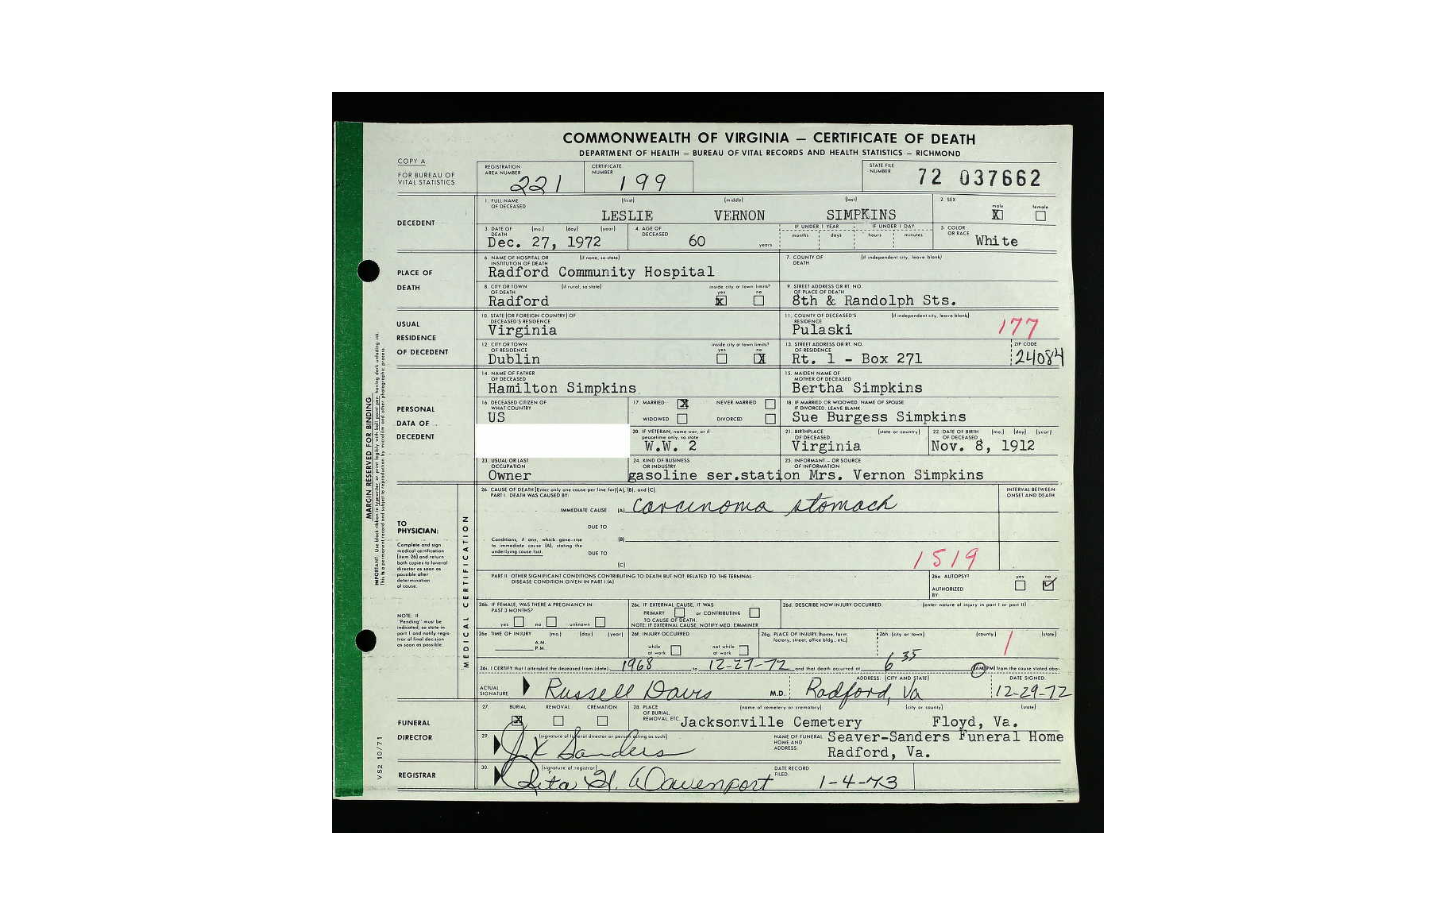 COMMONWEALTH OF VIRGINIA — CERTIFICATE OF DEATH
DEPARTMENT OF HEALTH — BUREAU OF VITAL RECORDS AND HEALTH STATISTICS — RICHMOND
COPY A
FOR BUREAU OF VITAL STATISTICS
REGISTRATION AREA NUMBER 221
CERTIFICATE NUMBER 199
STATE FILE NUMBER 72 037662
DECEDENT
1. FULL NAME OF DECEASED (first) (middle) (last)
LESLIE VERNON SIMPKINS
2. SEX male X female
3. DATE OF DEATH (mo.) (day) (year)
Dec. 27, 1972
4. AGE OF DECEASED 60 years
IF UNDER 1 YEAR months days
IF UNDER 1 DAY hours minutes
5. COLOR OR RACE White
PLACE OF DEATH
6. NAME OF HOSPITAL OR INSTITUTION OF DEATH (if none, so state)
Radford Community Hospital
7. COUNTY OF DEATH (if independent city, leave blank)
8. CITY OR TOWN OF DEATH (if rural, so state) inside city or town limits? yes X no
Radford
9. STREET ADDRESS OR RT. NO. OF PLACE OF DEATH
8th & Randolph Sts.
USUAL RESIDENCE OF DECEDENT
10. STATE (OR FOREIGN COUNTRY) OF DECEASED'S RESIDENCE
Virginia
11. COUNTY OF DECEASED'S RESIDENCE (if independent city, leave blank)
Pulaski 177
12. CITY OR TOWN OF RESIDENCE inside city or town limits? yes no X
Dublin
13. STREET ADDRESS OR RT. NO. OF RESIDENCE
Rt. 1 - Box 271
ZIP CODE 24084
PERSONAL DATA OF DECEDENT
14. NAME OF FATHER OF DECEASED
Hamilton Simpkins
15. MAIDEN NAME OF MOTHER OF DECEASED
Bertha Simpkins
16. DECEASED CITIZEN OF WHAT COUNTRY
US
17. MARRIED X NEVER MARRIED
WIDOWED DIVORCED
18. IF MARRIED OR WIDOWED, NAME OF SPOUSE IF DIVORCED, LEAVE BLANK
Sue Burgess Simpkins
20. IF VETERAN, name war, or if peacetime only, so state
W.W. 2
21. BIRTHPLACE OF DECEASED (state or country)
Virginia
22. DATE OF BIRTH OF DECEASED (mo.) (day) (year)
Nov. 8, 1912
23. USUAL OR LAST OCCUPATION
Owner
24. KIND OF BUSINESS OR INDUSTRY
gasoline ser.station
25. INFORMANT — OR SOURCE OF INFORMATION
Mrs. Vernon Simpkins
TO PHYSICIAN:
Complete and sign medical certification (item 26) and return both copies to funeral director as soon as possible after determination of cause.
NOTE: If "Pending" must be indicated, so state in part I and notify registrar of final decision as soon as possible.
MEDICAL CERTIFICATION
26. CAUSE OF DEATH [Enter only one cause per line for (A), (B), and (C)]
PART I. DEATH WAS CAUSED BY:
INTERVAL BETWEEN ONSET AND DEATH
IMMEDIATE CAUSE (A) carcinoma stomach
DUE TO
Conditions, if any, which gave rise to immediate cause (A), stating the underlying cause last. (B)
DUE TO
(C)
1519
PART II. OTHER SIGNIFICANT CONDITIONS CONTRIBUTING TO DEATH BUT NOT RELATED TO THE TERMINAL DISEASE CONDITION GIVEN IN PART I (A)
26a. AUTOPSY? yes no
AUTHORIZED BY
26b. IF FEMALE, WAS THERE A PREGNANCY IN PAST 3 MONTHS?
yes no unknown
26c. IF EXTERNAL CAUSE, IT WAS
PRIMARY or CONTRIBUTING
TO CAUSE OF DEATH
NOTE: IF EXTERNAL CAUSE, NOTIFY MED. EXAMINER
26d. DESCRIBE HOW INJURY OCCURRED (enter nature of injury in part I or part II)
26e. TIME OF INJURY (mo.) (day) (year)
A.M.
P.M.
26f. INJURY OCCURRED
while at work not while at work
26g. PLACE OF INJURY (home, farm factory, street, office bldg., etc.)
26h. (city or town) (county) (state)
1
26i. I CERTIFY that I attended the deceased from (date) 1968 to 12-27-72 and that death occurred at 6 35 from the cause stated above
ACTUAL SIGNATURE Russell Davis M.D.
ADDRESS: (CITY AND STATE) Radford, Va
DATE SIGNED 12-29-72
FUNERAL DIRECTOR
27. BURIAL X REMOVAL CREMATION
28. PLACE OF BURIAL, REMOVAL, ETC. (name of cemetery or crematory) (city or county) (state)
Jacksonville Cemetery Floyd, Va.
29. (signature of funeral director or person acting as such)
J.K Sanders
NAME OF FUNERAL HOME AND ADDRESS: Seaver-Sanders Funeral Home
Radford, Va.
REGISTRAR
30. (signature of registrar)
Rita H. Davenport
DATE RECORD FILED: 1-4-73
MARGIN RESERVED FOR BINDING
VS2 10/71